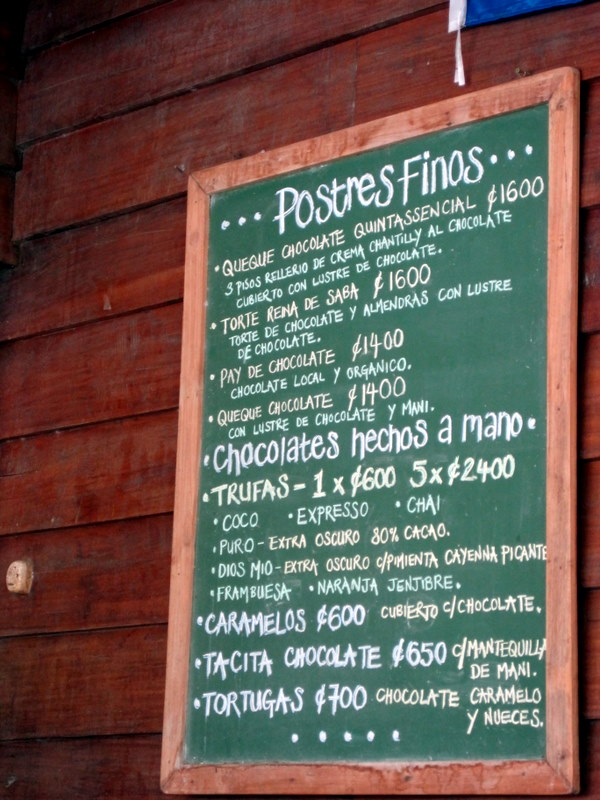 ... Postres Finos ...
• QUEQUE CHOCOLATE QUINTASSENCIAL ₡1600
3 PISOS RELLERIO DE CREMA CHANTILLY AL CHOCOLATE
CUBIERTO CON LUSTRE DE CHOCOLATE.
• TORTE REINA DE SABA ₡1600
TORTE DE CHOCOLATE Y ALMENDRAS CON LUSTRE
DE CHOCOLATE.
• PAY DE CHOCOLATE ₡1400
CHOCOLATE LOCAL Y ORGANICO.
• QUEQUE CHOCOLATE ₡1400
CON LUSTRE DE CHOCOLATE Y MANI.
• Chocolates hechos a mano •
• TRUFAS - 1 x ₡600 5 x ₡2400
• COCO • EXPRESSO • CHAI
• PURO - EXTRA OSCURO 80% CACAO.
• DIOS MIO - EXTRA OSCURO C/PIMIENTA CAYENNA PICANTE
• FRAMBUESA • NARANJA JENJIBRE.
• CARAMELOS ₡600 CUBIERTO C/CHOCOLATE.
• TACITA CHOCOLATE ₡650 C/MANTEQUILLA
DE MANI.
• TORTUGAS ₡700 CHOCOLATE CARAMELO
Y NUECES.